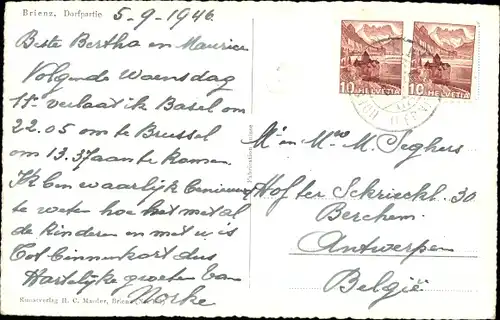 Brienz. Dorfpartie
5-9-1946
Beste Bertha en Maurice
Volgende Woensdag
11- verlaat ik Basel om
22.05 om te Brussel
om 13.37 aan te komen.
Ik ben waarlijk benieuwd
te weten hoe het met al
de kinderen en met u is
Tot binnenkort dus
Hartelijke groeten van
Kunstverlag H. C. Maeder, Brienz
Fabrication Suisse
10 HELVETIA
10 HELVETIA
M' en Mw M. Seghers
Hof ter Schrieck 30
Berchem
Antwerpen
België